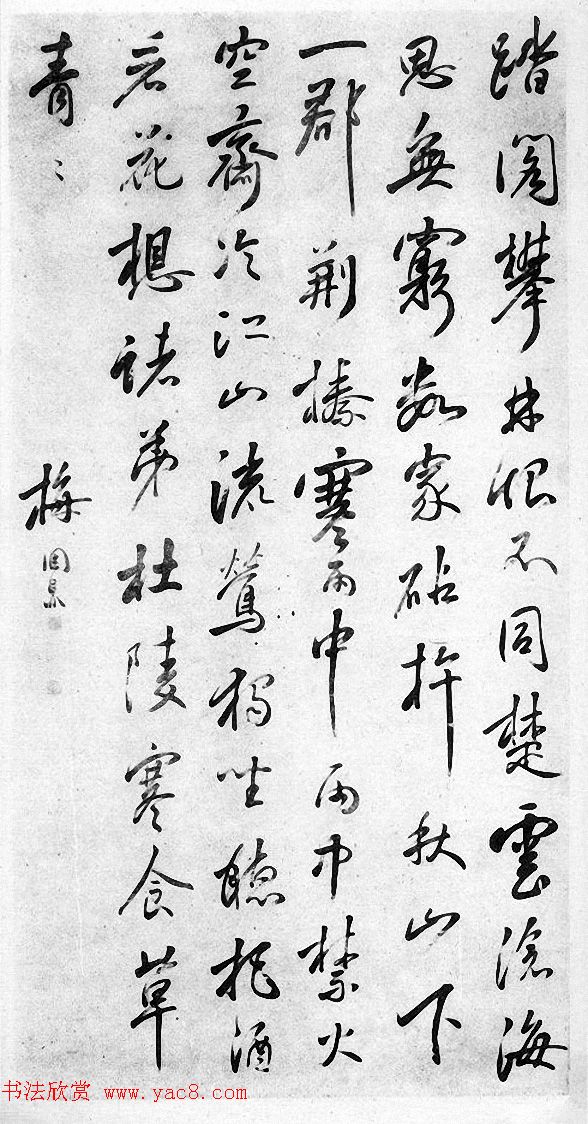 踏閣攀林恨不同楚雲滄海
思無窮數家砧杵秋山下
一郡荊榛寒雨中雨中禁火
空齋冷江山流鶯獨坐聽把酒
看花想諸弟杜陵寒食草
青〻
梅
书法欣赏 www.yac8.com